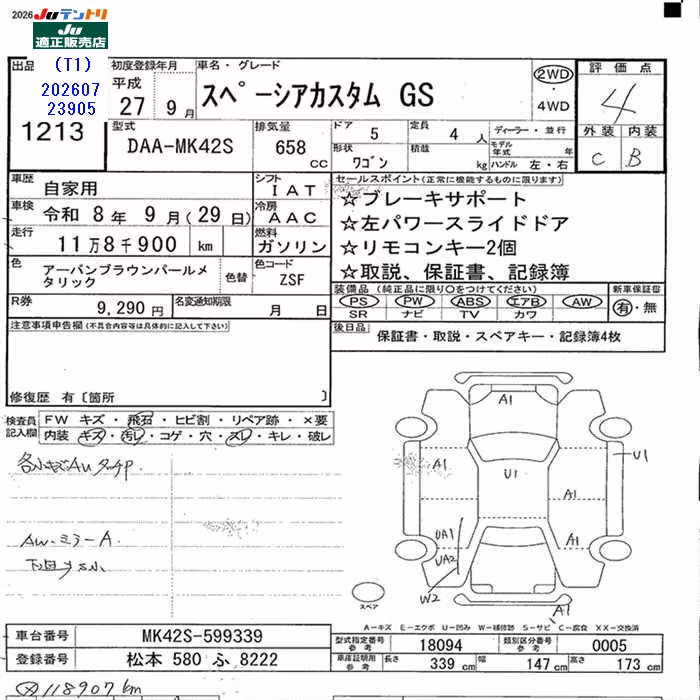 2026 Juテントリ
Ju
適正販売店
出品 (T1)
202607
23905
1213
初度登録年月 平成 27 9月
車名・グレード
スペーシアカスタム GS
2WD
4WD
評価点
4
外装 内装
C B
型式 DAA-MK42S
排気量 658 cc
ドア 5
定員 4 人
ディーラー・並行
形状 ワゴン
積載 kg
モデル年式 年
ハンドル 左・右
車歴 自家用
シフト IAT
車検 令和 8年 9月(29日)
冷房 AAC
走行 11万8千900 km
燃料 ガソリン
色 アーバンブラウンパールメタリック
色替
色コード ZSF
R券 9,290円
名変通知期限 月 日
セールスポイント(正常に機能するものに限ります)
☆ブレーキサポート
☆左パワースライドドア
☆リモコンキー2個
☆取説、保証書、記録簿
装備品(純正品に限り○をつけてください)
PS PW ABS エアB AW
SR ナビ TV カワ
新車保証書
有・無
後日品 保証書・取説・スペアキー・記録簿4枚
注意事項申告欄(不具合内容等は具体的に記入して下さい)
修復歴 有〔箇所 〕
検査員記入欄
FW キズ・飛石・ヒビ割・リペア跡・×要
内装 キズ・汚レ・コゲ・穴・スレ・キレ・破レ
AW.ミラーA.
A1
A1
U1
U1
A1
A1
UA1
UA2
W2
A1
スペア
A-キズ E-エクボ U-凹み W-補修跡 S-サビ C-腐食 XX-交換済
車台番号 MK42S-599339
登録番号 松本 580 ふ 8222
型式指定番号 参考 18094
類別区分番号 参考 0005
車庫証明用 参考 長さ 339 cm 幅 147 cm 高さ 173 cm
118907km